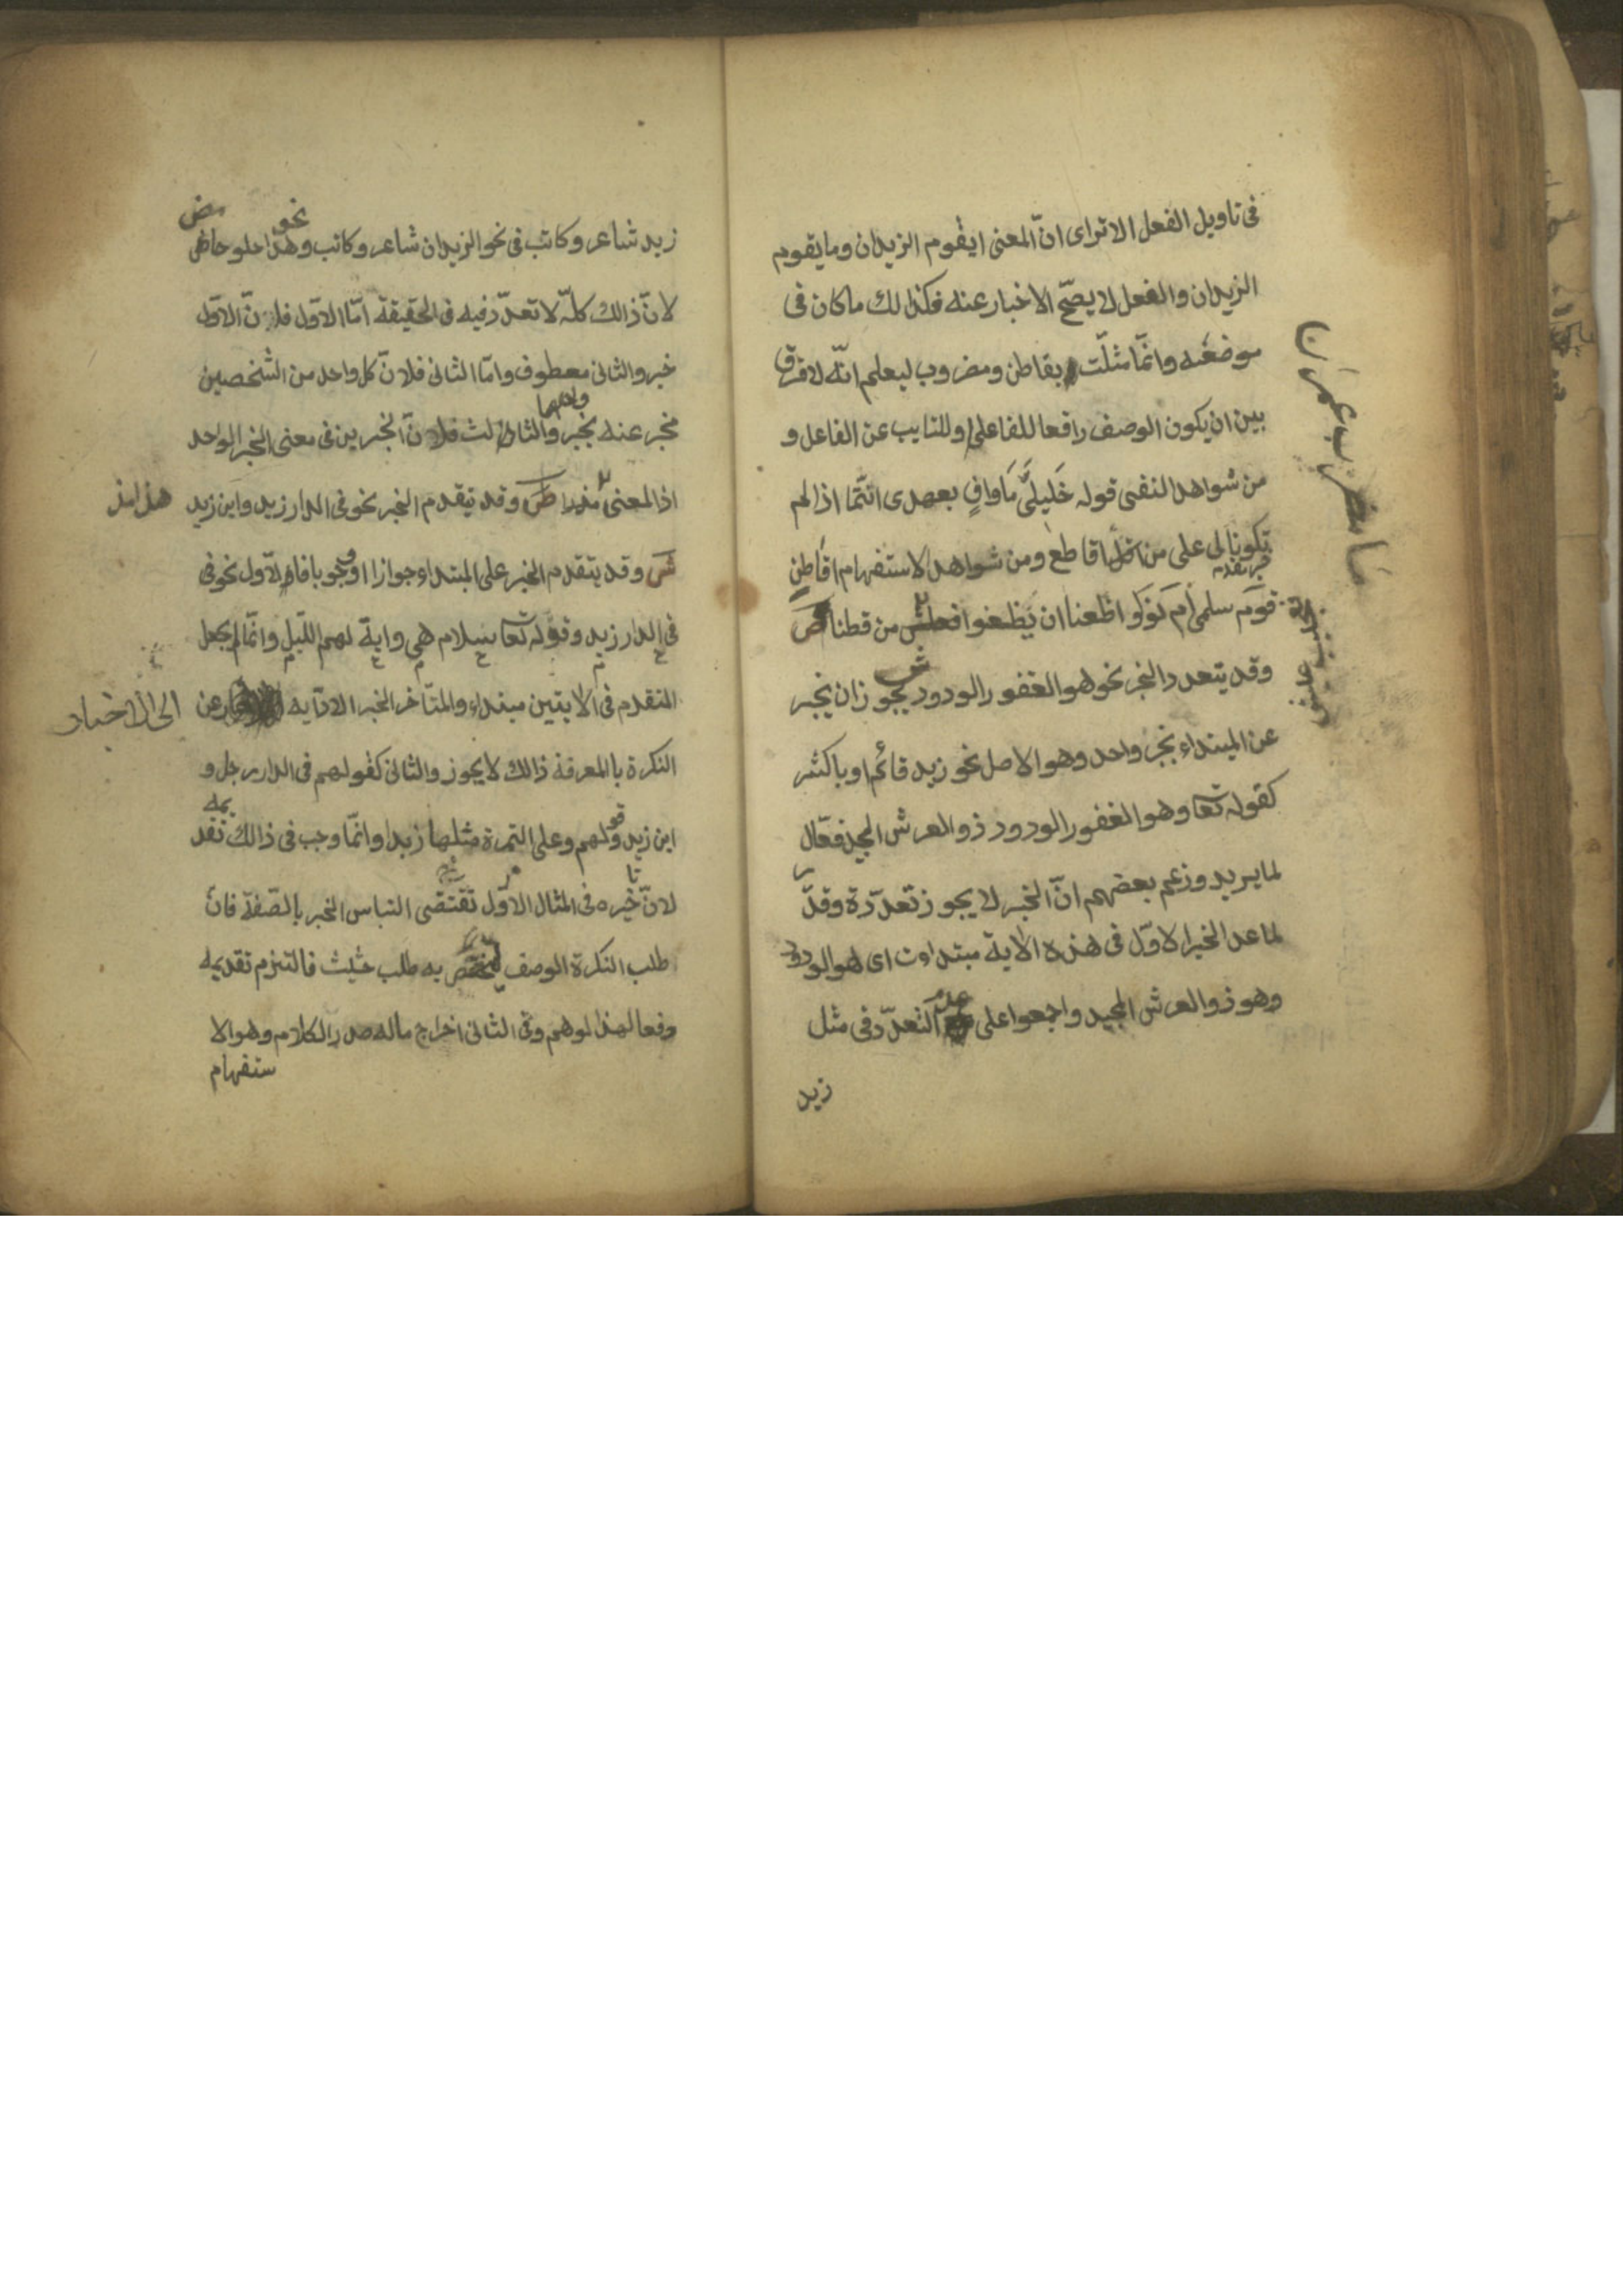 فى تاويل الفعل الاترای انّ المعنى ايقوم الزيدان وما يقوم
الزيدان والفعل لا يصحّ الاخبار عنه فكذالك ماكان فى
موضعه وانمّا مثلّت بقاطن ومضروب ليعلم انّه لافرق
بين ان يكون الوصف رافعا للفاعل او للنايب عن الفاعل و
من شواهد النفى قوله خَليلىَّ مَا وافٍ بعهدى انتَما اذا لم
تكونا لى على من اقاطع ومن شواهد الاستفهام اقَاطِن
قوَم سلمى اَم نَوَوا ظعنا ان يَظعنوا فعجيب من قطنا ص
وقد يتعدد الخبر نحو هو الغفور الودود ش يجوزان يخبر
عن المبتداء بخبر واحد وهو الاصل نحو زيد قائم او باكثر
كقوله تعا وهو الغفور الودود ذوالعرش المجيد فعّال
لما يريد وزعم بعضهم انّ الخبر لا يجوز تعدّدة وقدّر
لما عدا الخبر الاوّل فى هذه الاية مبتداءت اى هو الودود
وهو ذو العرش المجيد واجمعوا على عدم التعدّد فى مثل
زيد
ما يضرب عمران
زيد شاعر وكاتب فى نحو الزيدان شاعر وكاتب ونحو هذا حلو حامض
لانّ ذالك كلّه لا تعدّد فيه فى الحقيقة امّا الاوّل فلانّ الاوّل
خبر والثانى معطوف وامّا الثانى فلانّ كل واحد من الشّخصين
مخبر عنه بخبر وامّا الثالث فلانّ الخبرين فى معنى الخبر الواحد
اذ المعنى هذا مز ص وقد يتقدم الخبر نحو فى الدار زيد واين زيد
ش وقد يتقدم الخبر على المبتداء جوازا او وجوبا فالاوّل نحو فى
فى الدار زيد وقوله تعا سلام هى واية لهم اللّيل وانّما لم يجعل
المتقدم فى الايتين مبتداء والمتأخر الخبر لادّايه الى الاخبار عن
النكرة بالمعرفة ذالك لا يجوز والثانى كقولهم فى الدار رجل و
اين زيد وقولهم وعلى التمرة مثلها زبدا وانّما وجب فى ذالك تقديمه
لانّ تاخيره فى المثال الاوّل تقتضى التباس الخبر بالصّفة فانّ
طلب النكرة الوصف لتختص به طلب حثيث فالتزم تقديمه
دفعا لهذا لوهم وفى الثانى اخراج ماله صدر الكلام وهو الا
ستفهام